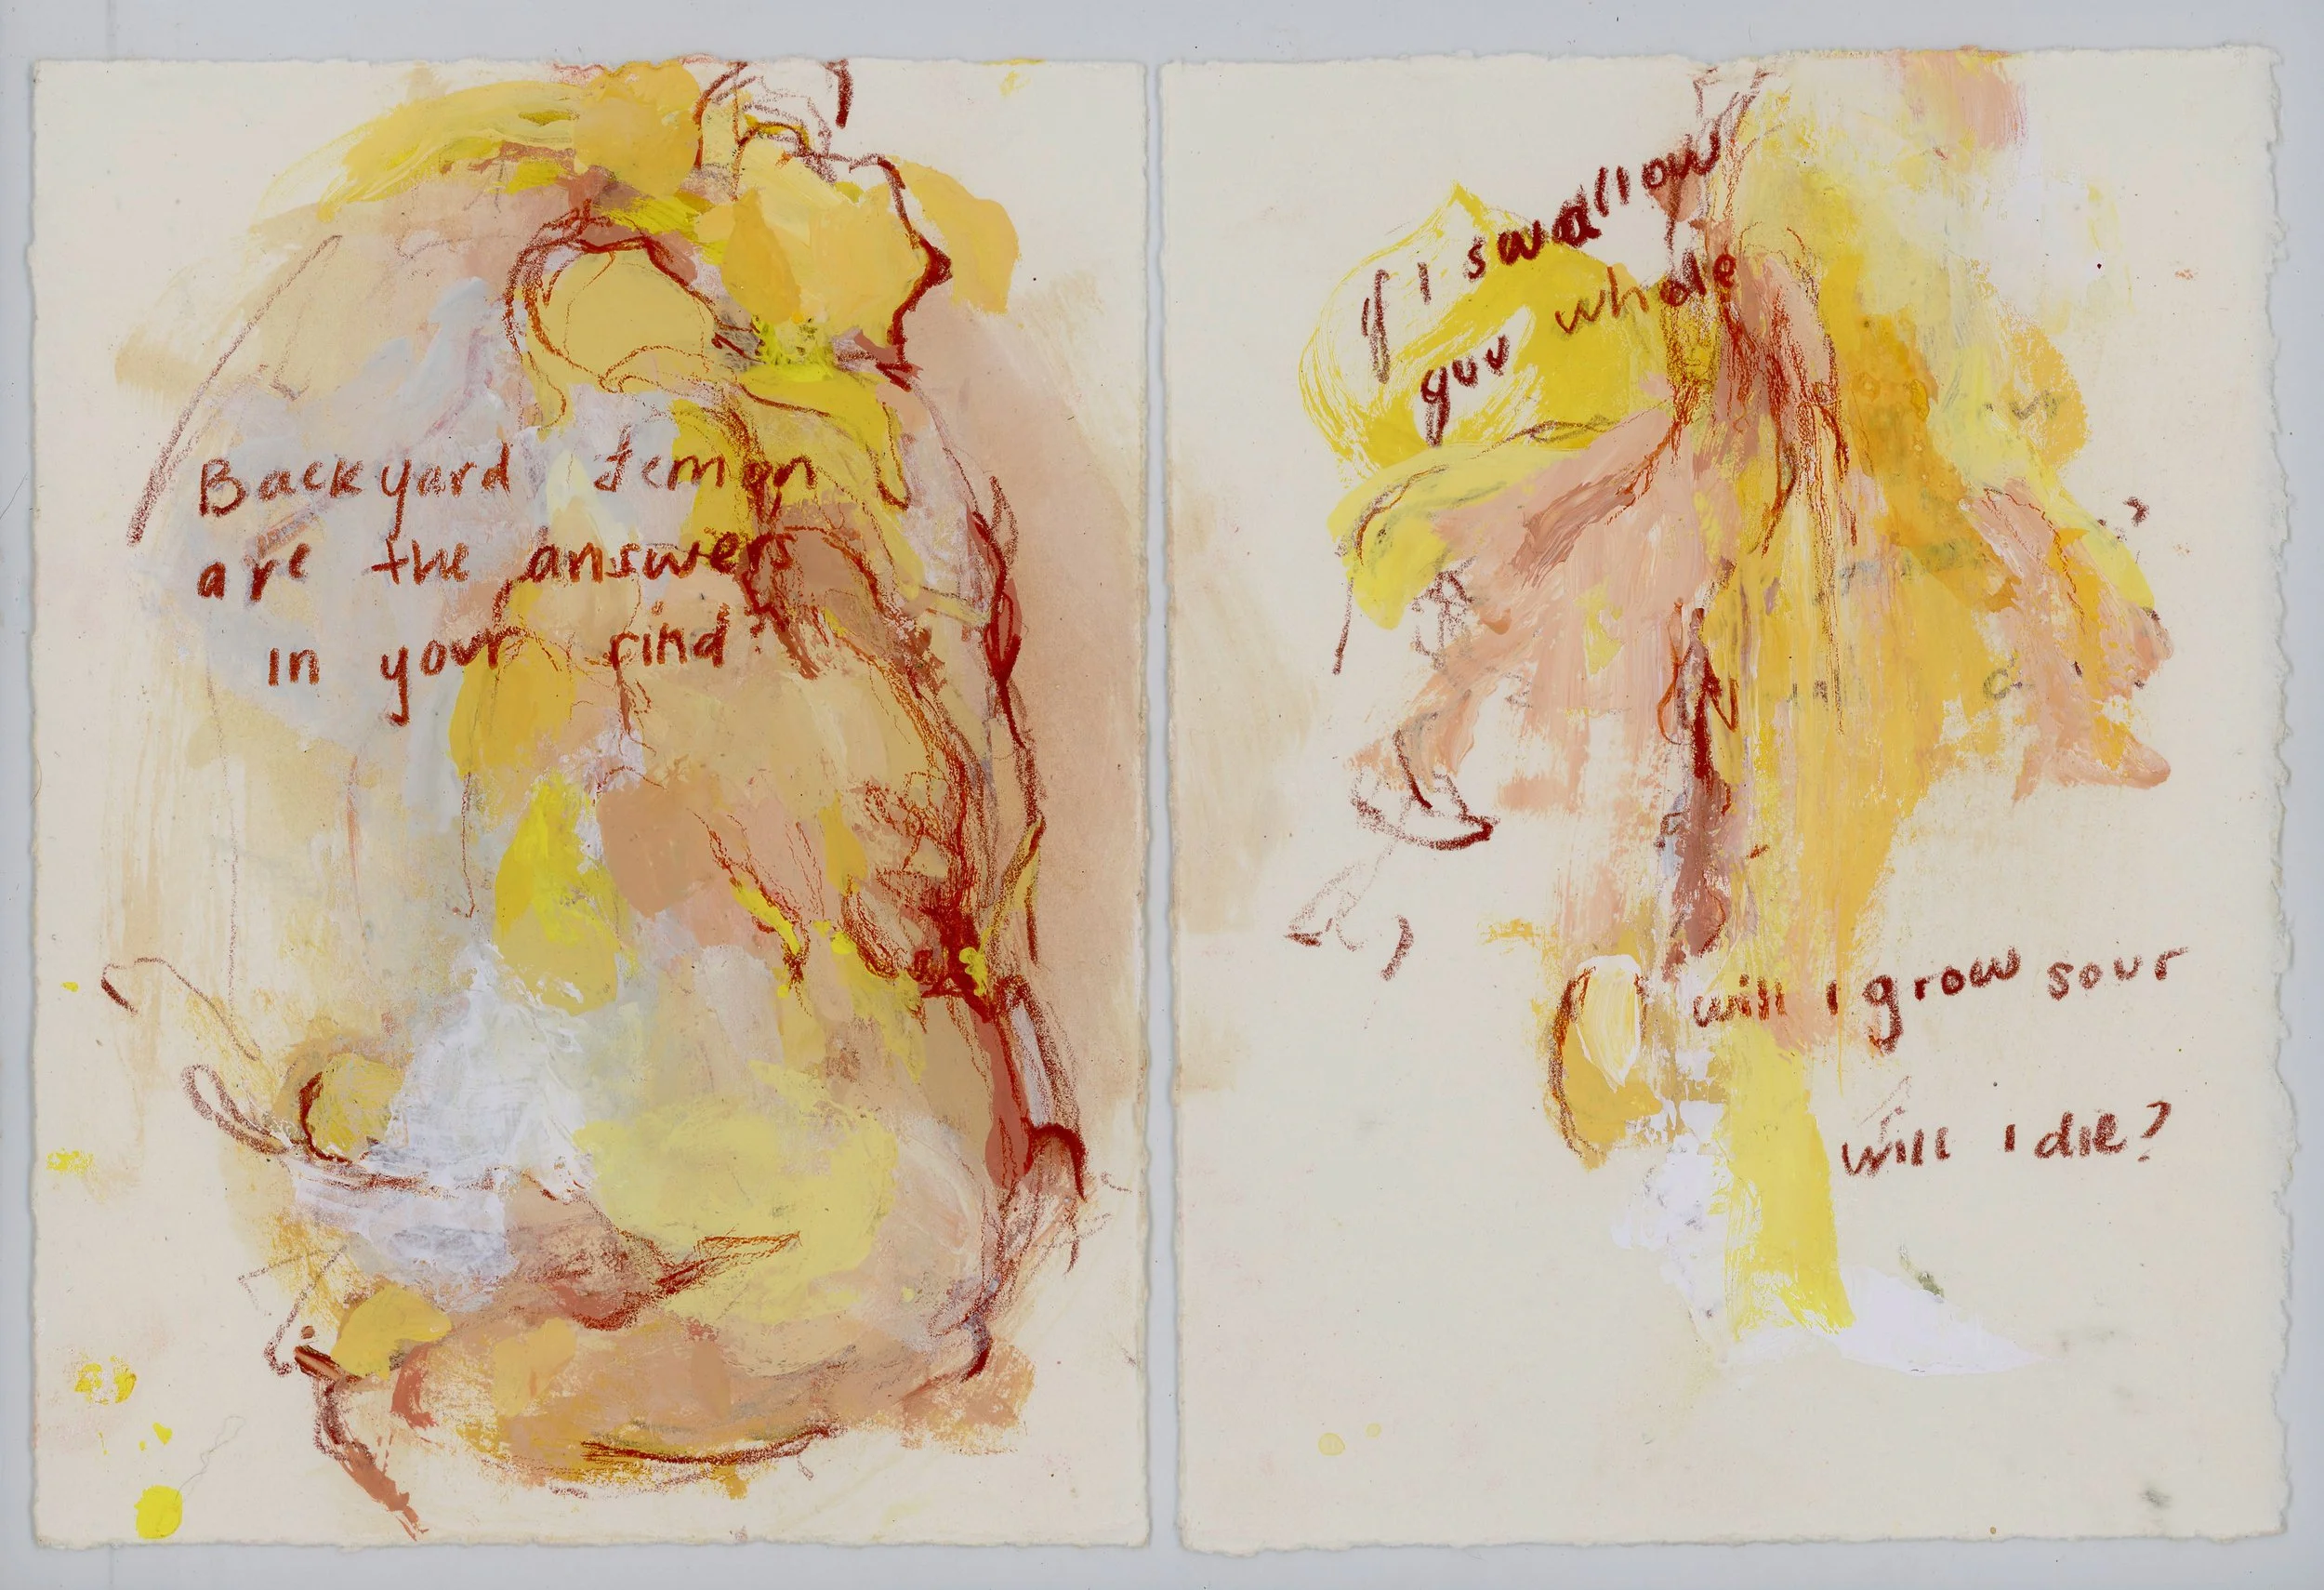 Backyard lemon
are the answers
in your rind?
if I swallow
you whole
will i grow sour
will i die?